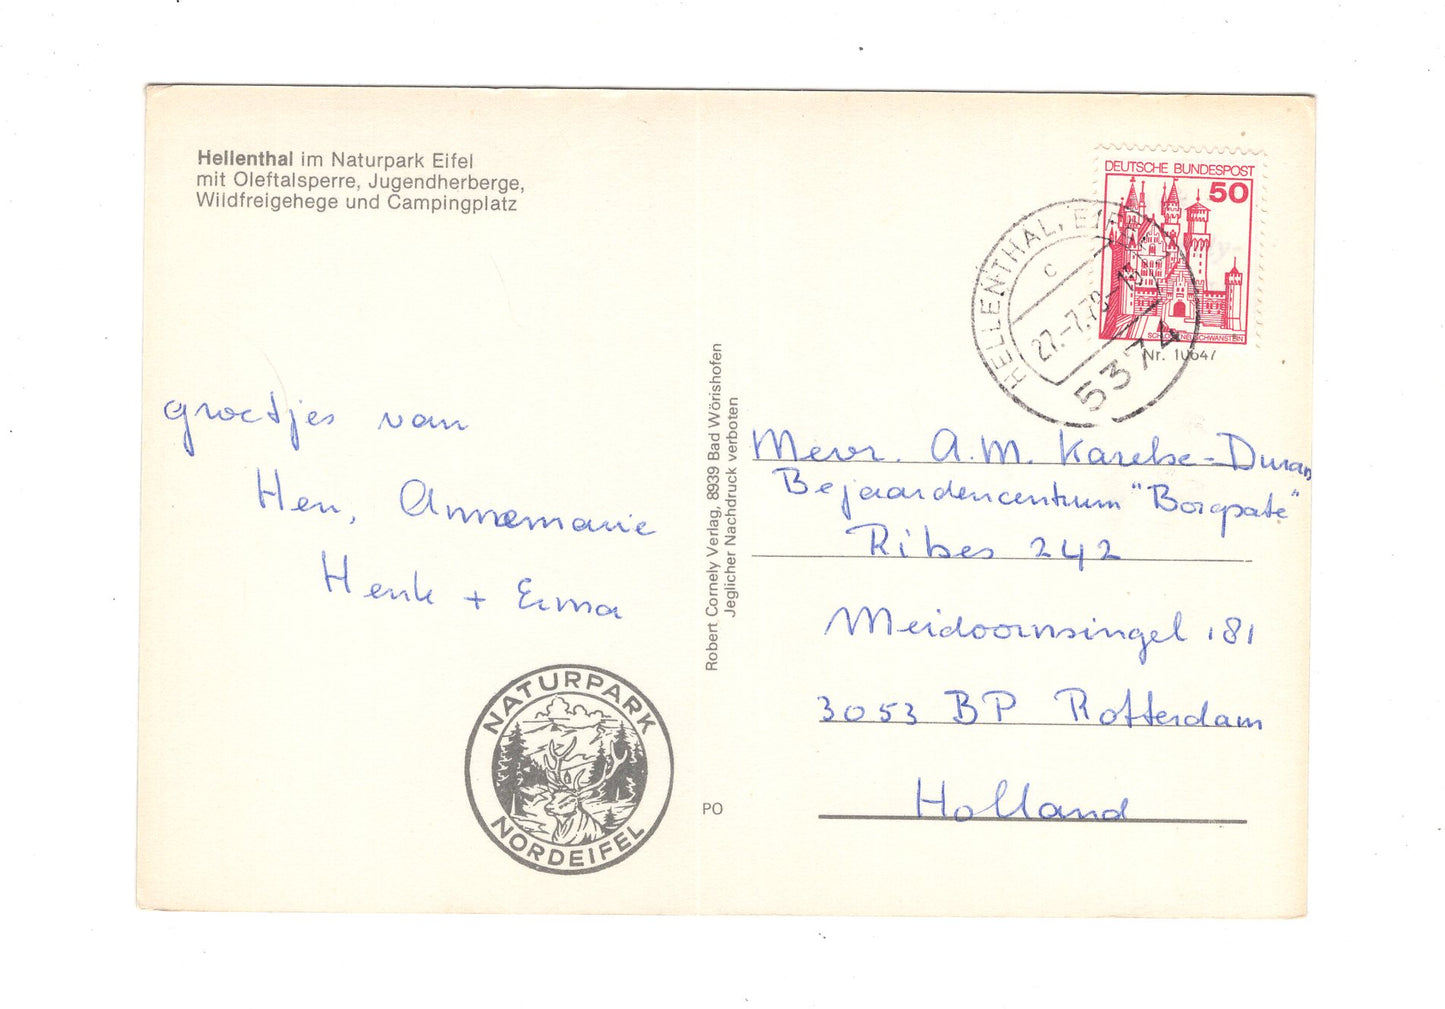 Hellenthal im Naturpark Eifel
mit Oleftalsperre, Jugendherberge,
Wildfreigehege und Campingplatz
groetjes van
Hen, Annemarie
Henk + Erma
NATURPARK
NORDEIFEL
Robert Cornely Verlag, 8939 Bad Wörishofen
Jeglicher Nachdruck verboten
PO
DEUTSCHE BUNDESPOST
50
SCHLOSS NEUSCHWANSTEIN
HELLENTHAL, EIFEL
C
27.-7.78-15
5374
Nr. 10647
Mevr. A.M. Karelse-Duran
Bejaardencentrum "Borgsate"
Ribes 242
Meidoornsingel 181
3053 BP Rotterdam
Holland